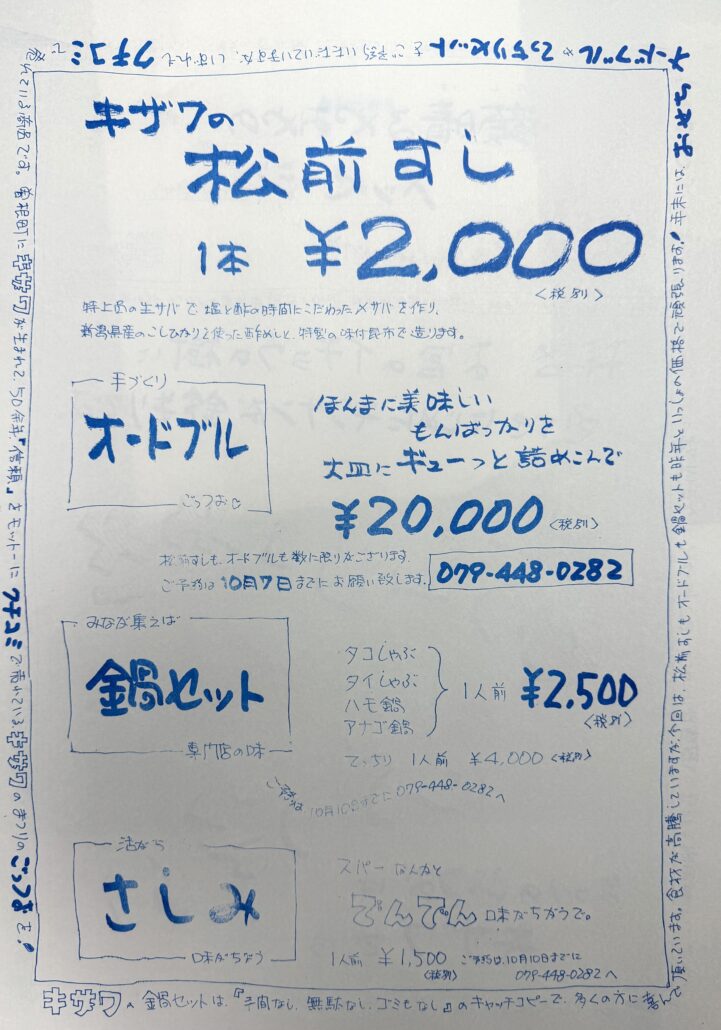 キザワの
松前すし
1本 ¥2,000
〈税別〉
特上品の生サバで塩と酢の時間にこだわった〆サバを作り、
新潟県産のこしひかりを使った酢めしと、特製の味付昆布で造ります。
手づくり
オードブル
ごっつお
ほんまに美味しい
もんばっかりを
大皿にギューっと詰めこんで
¥20,000〈税別〉
松前すしも、オードブルも数に限りがございます。
ご予約は10月7日までにお願い致します。
079-448-0282
みなが集えば
鍋セット
専門店の味
タコしゃぶ
タイしゃぶ
ハモ鍋
アナゴ鍋
1人前 ¥2,500
〈税別〉
てっちり 1人前 ¥4,000〈税別〉
ご予約は10月10日までに079-448-0282へ
活がち
さしみ
味がちがう
スーパーなんかと
でんでん味がちがうで。
1人前 ¥1,500
〈税別〉
ご予約は10月10日までに
079-448-0282へ
キザワの鍋セットは、『手間なし、無駄なし、ゴミもなし』のキャッチコピーで、多くの方に喜んで
頂いています。食材が高騰していますが今回は、松前すしもオードブルも鍋セットも昨年といっしょの価格で頑張ります！年末には、おせち
オードブルやてっちりセットをご予約いただいていますが、いずれもクチコミで
売れている商品です。曽根町にキザワが生まれて50余年『信頼』をモットーにクチコミで売れているキザワのまつりのごっつおを！